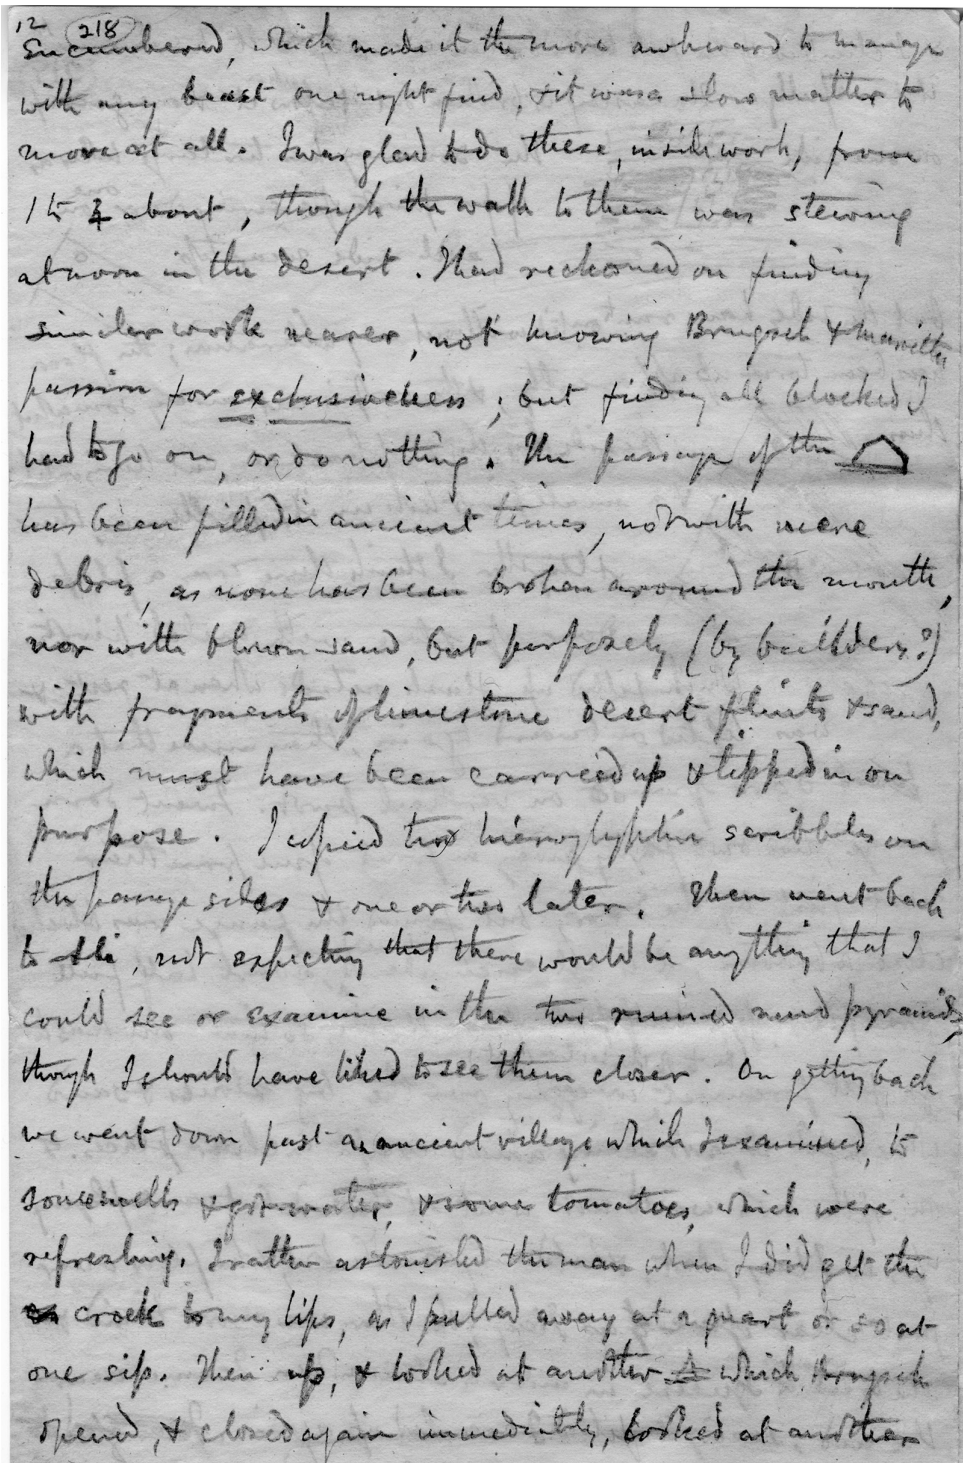 12 218
encumbered, which made it the more awkward to manage
with any beast one might find, & it was a slow matter to
move at all. I was glad to do these, inside work, from
1 to 4 about, though the walk to them was stewing
at noon in the desert. I had reckoned on finding
similar work nearer, not knowing Brugsch & Mariette
passion for exclusiveness; but finding all blocked I
had to go on, or do nothing. The passage of the
has been filled in ancient times, not with mere
debris, as none has been broken around the mouth,
nor with blown sand, but purposely (by builders?)
with fragments of limestone desert flints & sand,
which must have been carried up & tipped in on
purpose. I copied two hieroglyphic scribbles on
the passage sides & one or two later. Then went back
to, not expecting that there would be anything that I
could see or examine in the two ruined mud pyramids,
though I should have liked to see them closer. On getting back
we went down past an ancient village which I examined, to
some wells & got water, & some tomatoes, which were
refreshing. I rather astonished the man when I did get the
crock to my lips, as I pulled away at a quart or so at
one sip. Then up, & looked at another which Brugsch
opened, & closed again immediately, looked at another